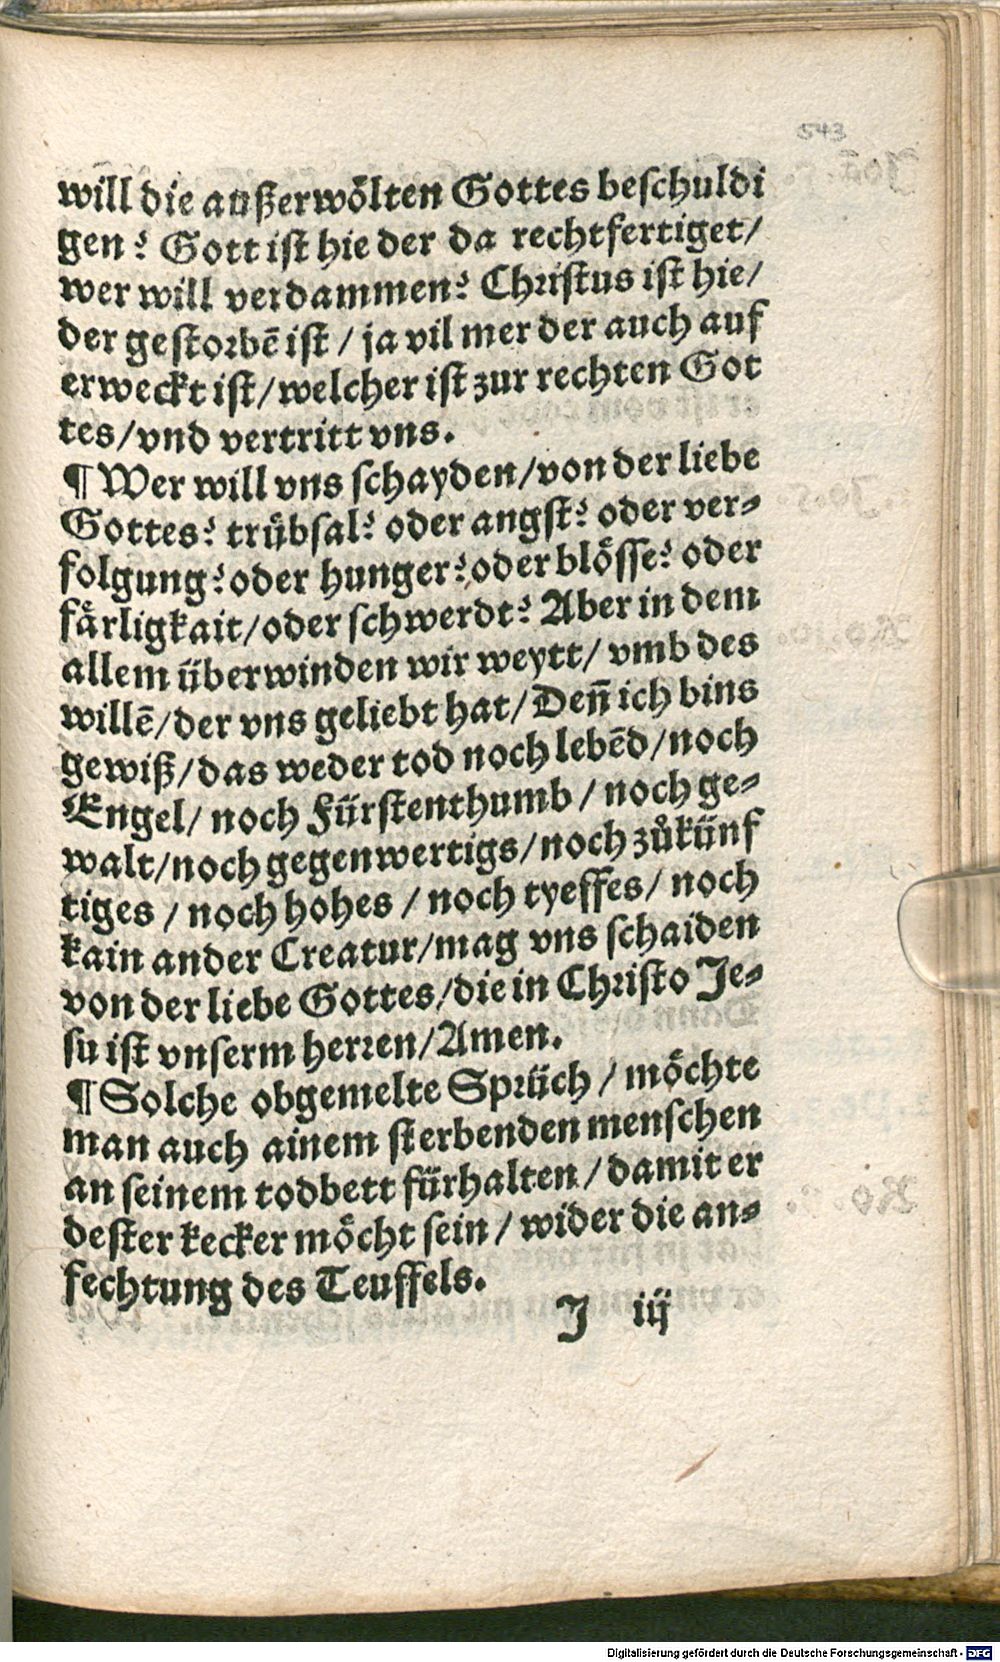 543
will die außerwölten Gottes beschuldi
gen? Gott ist hie der da rechtfertiget/
wer will verdammen? Christus ist hie/
der gestorbē ist / ja vil mer der auch auf
erweckt ist/welcher ist zur rechten Got
tes/vnd vertritt vns.
¶ Wer will vns schayden/von der liebe
Gottes? trübsal? oder angst? oder ver⸗
folgung? oder hunger? oder blösse? oder
färligkait/oder schwerdt? Aber in dem
allem überwinden wir weytt/ vmb des
willē/der vns geliebt hat/Deñ ich bins
gewiß/das weder tod noch lebēd/noch
Engel/ noch Fürstenthumb / noch ge⸗
walt/noch gegenwertigs/noch zůkünf
tiges / noch hohes / noch tyeffes/ noch
kain ander Creatur/mag vns schaiden
von der liebe Gottes/die in Christo Je⸗
su ist vnserm herren/Amen.
¶ Solche obgemelte Sprüch / möchte
man auch ainem sterbenden menschen
an seinem todbett fürhalten/damit er
dester kecker möcht sein / wider die an⸗
fechtung des Teuffels.
J iij
Digitalisierung gefördert durch die Deutsche Forschungsgemeinschaft - DFG